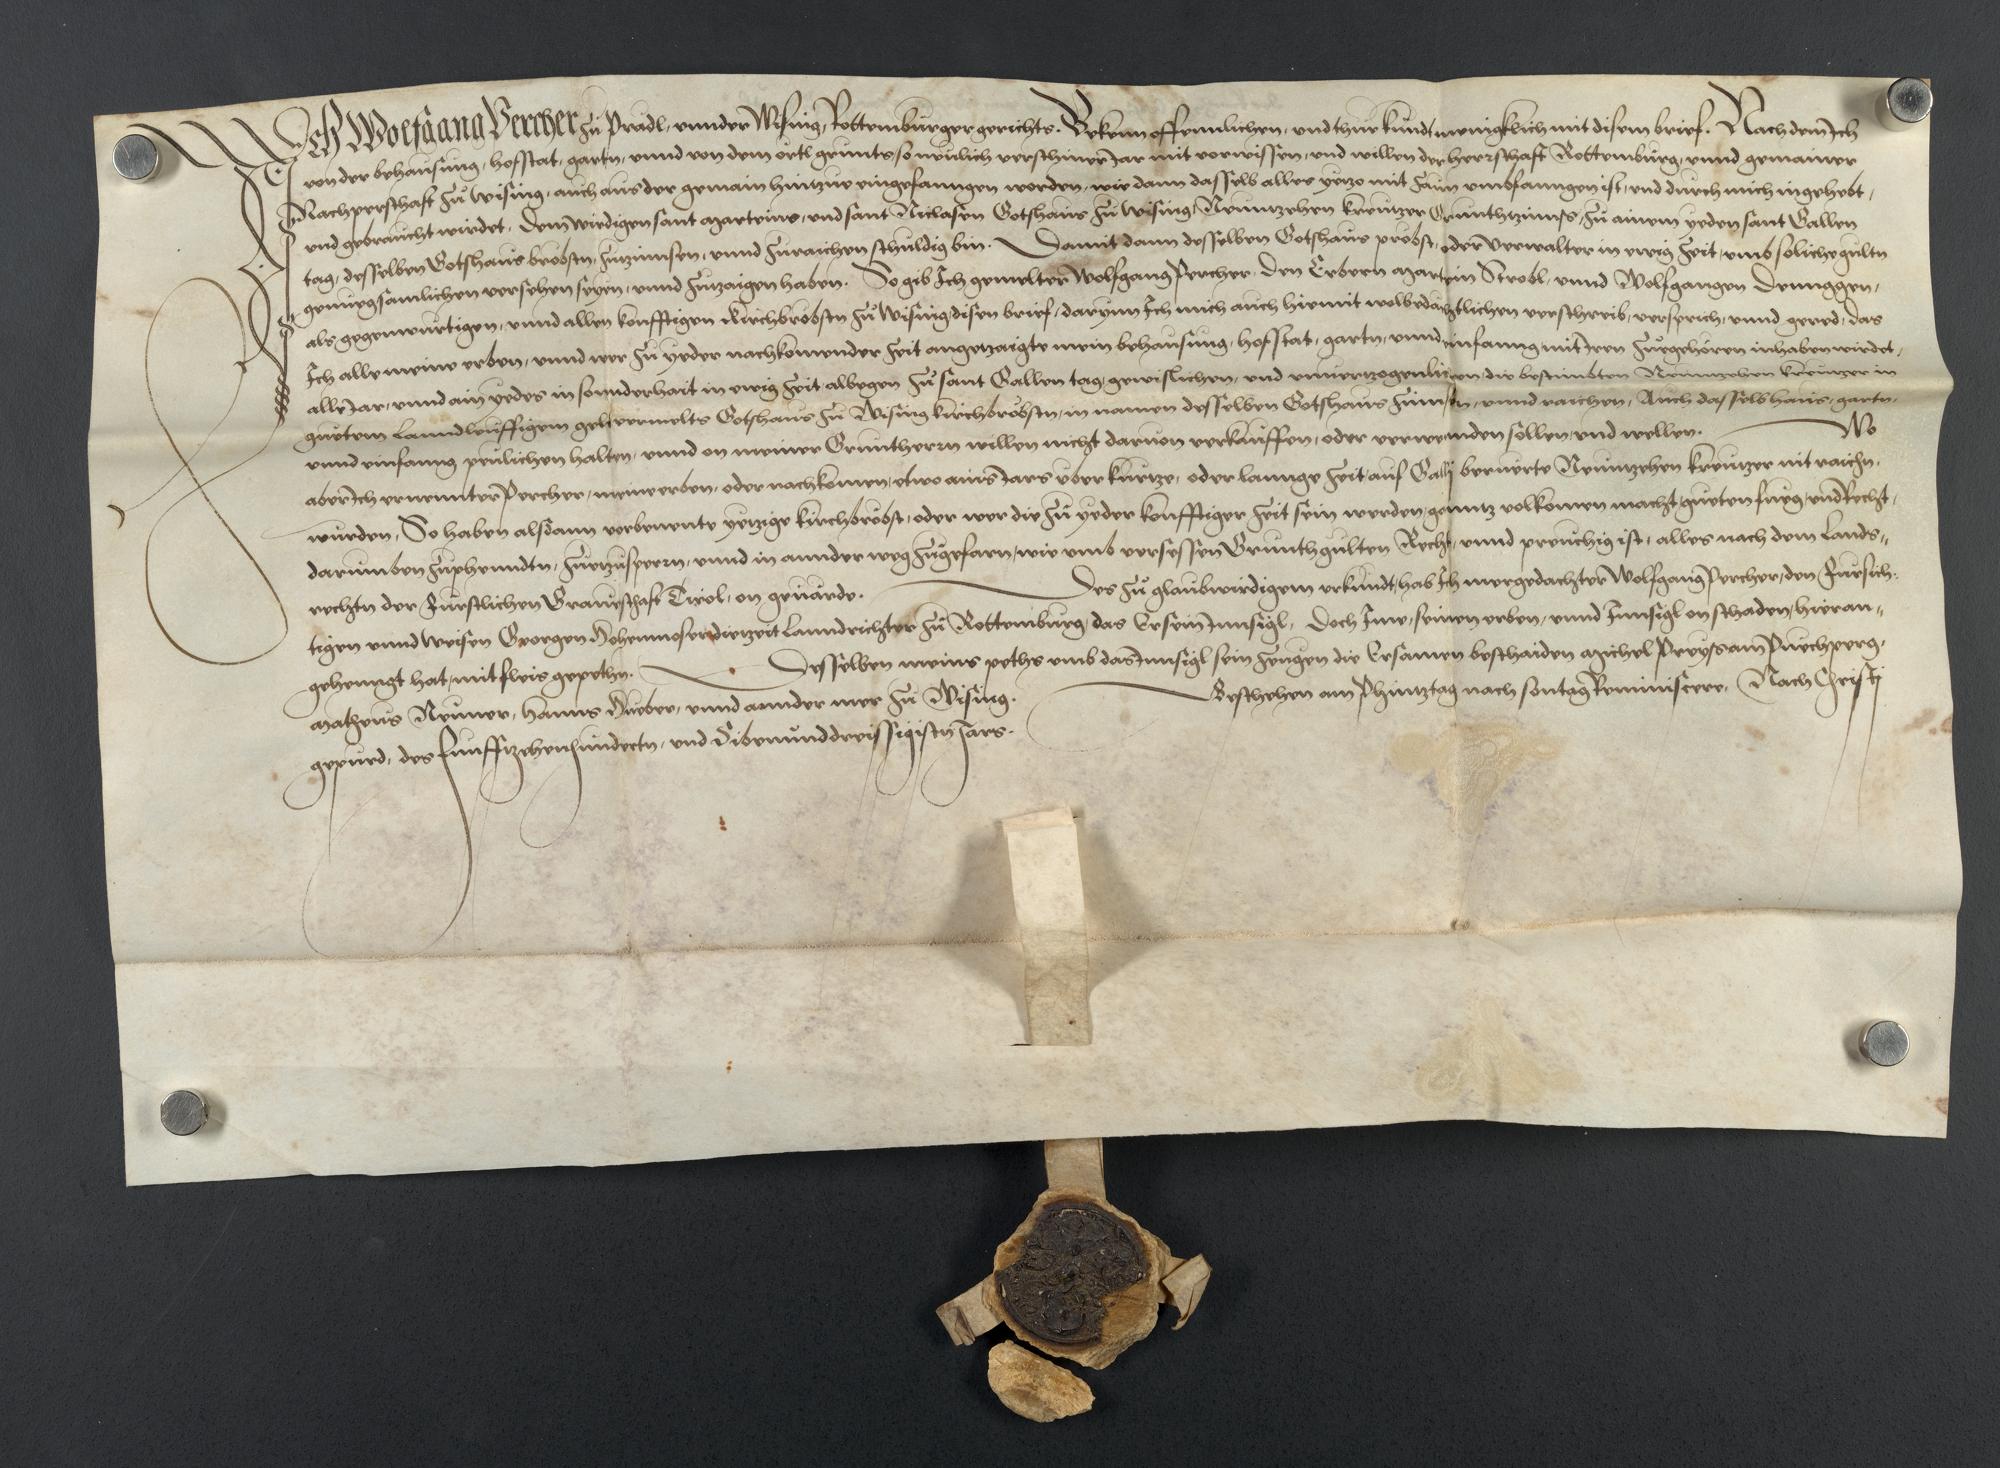 Ich Wolfgang Percher zu Pradl, vnnder Wising, Rottemburger gerichts. Bekenn offennlichen, vnd thue kundt menigklich mit disem brief. Nachdem Ich
von der behausung, hofstat, gartn, vnnd von dem örtl grunts, so neulich verschiner Jar mit vorwissen, vnd willen der herrschaft Rottemburg, vnnd gemainer
Nachperschaft zu Wising, auch aus der gemain hintzue eingefanngen worden, wie dann dasselb alles yetzo mit zaun vmbfanngen ist, vnd durch mich ingehebt,
vnd gebraucht wirdet. Dem wirdigen sant Marteins, vnd sant Niclasen Gotshaus zu Wising, Neuntzehen kreutzer Grunthtzinnss, zu ainem yeden sant Gallen
tag, desselben Gotshaus bröbstn, zutzinnsen, vnnd zuraichen schuldig bin. Damit dann desselben Gotshaus pröbst, oder verwalter in ewig zeit, vmb soliche gultn
genuegsamlichen versehen seyen, vnnd zutzaigen haben. So gib Ich gemelter Wolfgang Percher, den Erbern Martein Strobl, vnnd Wolfgangen Denggen,
als gegenwurtigen, vnnd allen konfftigen kirchbröbstn zu Wising, disen brief, darynn Ich mich auch hiemit wolbedachtlichen verschreib, versprich, vnnd gered, das
Ich alle meine erben, vnnd wer zu yeder nachkomender zeit angetzaigte mein behausung, hofstat, gartn, vnnd einfanng mit Iren zuegehören inhaben wirdet,
alle Jar, vnnd ain yedes in sonnderhait in ewig zeit albegen zu sant Gallen tag, gewislichen, vnd vnuertzogenlichen, die bestimbten Neuntzehen kreutzer in
guetem Lanndleuffigem gelt vermelts Gotshaus zu Wising kirchbröbstn, in namen desselben Gotshaus zinnsen, vnnd raichen, Auch dasselb haus, gartn,
vnnd einfanng peulichen halten, vnnd on meiner Gruntherrn willen nicht daruon verkauffen, oder verwennden sollen, vnd wellen. Wo
aber Ich ernennter Percher, meine erben, oder nachkomen, etwo ains Jars vber kurtze, oder lannge zeit, auf Galli beruerte Neuntzehen kreutzer nit raichn,
wurden, So haben alsdann verbenente yetzige kirchbröbst, oder wer die zu yeder konfftiger zeit sein werden, ganntz volkomen macht, gueten fueg, vnd Recht,
darumben zuphenndtn, zuetzusperrn, vnnd in annder weg zugefarn, wie vmb versessen Grunthgulten Recht, vnnd preuchig ist, alles nach dem Lannds-
rechtn der Furstlichen Graueschaft Tirol, on geuärde. Des zu glaubwirdigem vrkundt, hab Ich mergedachter Wolfgang Percher, den Fursich-
tigen vnnd weisen Georgen Hohenmoser dietzeit Lanndrichter zu Rottemburg, das Er sein Innsigl, Doch Ime, seinen erben, vnnd Innsigl on schaden, hieran-
gehenngt hat, mit fleis gepethn. Desselben meins peths vmb das Innsigl sein zeugen die Ersamen beschaiden Michel Preyss am Puechperg,
Matheus Neuner, Hanns Hueber, vnnd annder mer zu Wising. Geschehen am Phintztag nach sontag Reminiscere, Nach Christi
gepurd, des funffzehenhundertn, vnd Sibenunddreissigistn Jars.